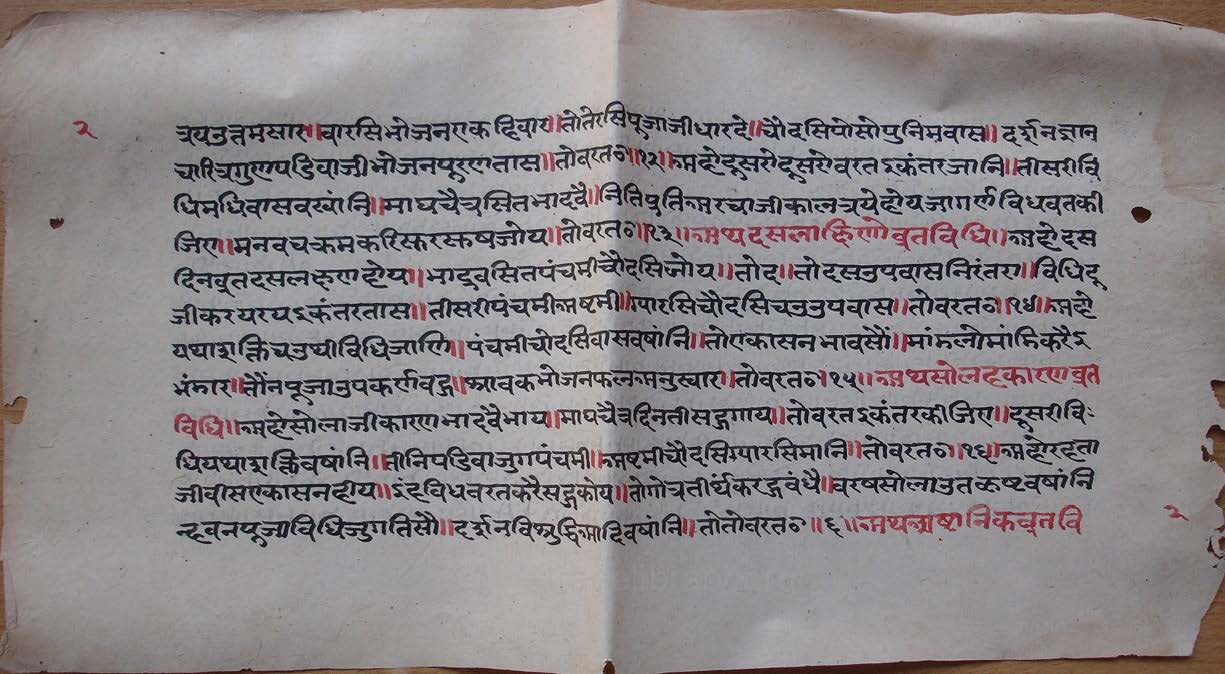 २
त्रययुतुत्तमसारा॥वारसिभोजनएकहिवार॥तोतेरसिपूजाजीधारदे॥चौदसिपोसोपुनिमवास॥दर्शनज्ञान
चारित्रगुणपडिवाजीभोजनपूरणतास॥तोवरत॰॥१२॥अहोदूसरोदूसरोवरतऽकंतरजानि॥तीसरीवि
धिमधिवासवखांनि॥माघचैत्रसितभादवै॥नितिपुतिअरचाजीकालत्रयेहोयजागर्णविधवृतकी
जिए॥मनवचक्रमकरि॥तोवरत॰॥१३॥अथदसलाक्षिणीवृतविधि॥अहोदस
दिनवृतदसलक्षणहोय॥भाद्रवसितपंचमीचौदसिजोय॥तोद॥तोदसउपवासनिरंतरा॥विधिदू
जीकरयरयऽकंतरतास॥तीसरीपंचमीअष्टमी॥ग्यारसिचौदसिचउउपवास॥तोवरत॰॥१४॥अहो
यथाशक्तिचउथीविधिजाणि॥पंचमीचौदसिवासवषांनि॥तोएकासनभावसौं॥मांडलोमांडिकरैऽ
भंडार॥तौंनपूजाउपकर्णवद्ग॥श्रावकभोजनफलअनुस्वार॥तोवरत॰॥१५॥अथसोलहकारणवृत
विधि॥अहोसोलाजीकारणभादवैभाय॥माघचैत्रदिनतीसद्गगाय॥तोवरतऽकंतरकीजिए॥दूसरीवि
धियथाशक्तिवषांनि॥तीनिपडिवाजुगपंचमी॥अष्टमीचौदसिग्यारसिमानि॥तोवरत॰॥१६॥अहोरहता
जीवीसएकासनहोय॥ऽंहविधवरतकरैसद्गकोय॥तोगोत्रतीर्थंकरद्गवंधै॥वरषसोलाउतकष्टवषांनि
न्हवनपूजाविधिजुगतिसौ॥दर्शनविशुद्धिआदिवषांनि॥तोतोवरत॰॥६॥अथअष्टानिकवृतवि
२